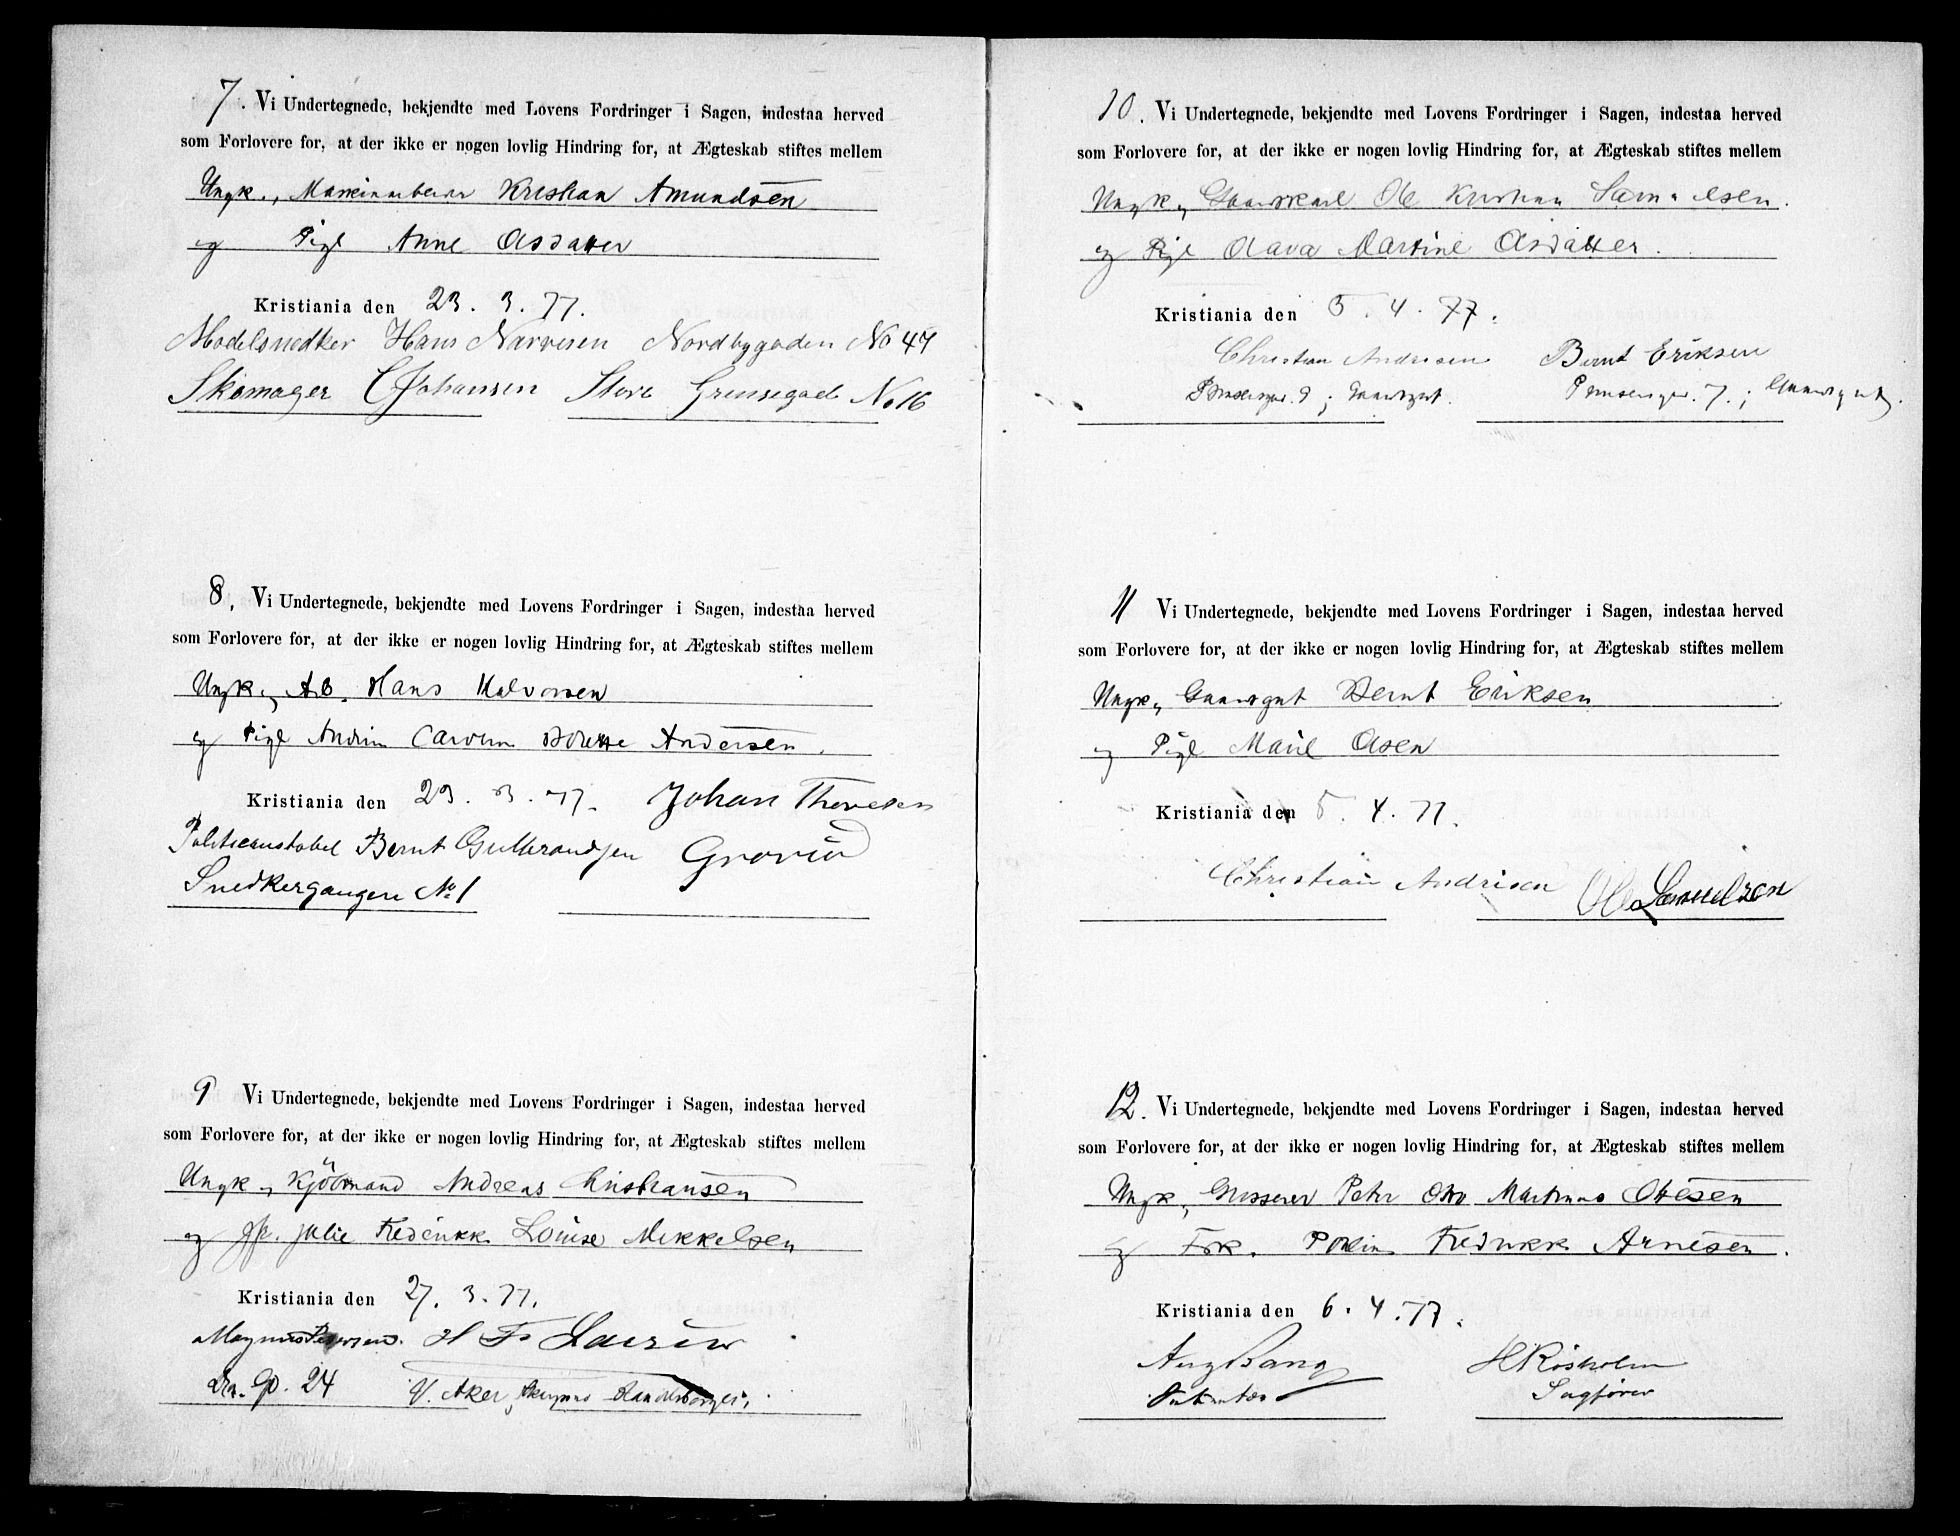 7. Vi Undertegnede, bekjendte med Lovens Fordringer i Sagen, indestaa herved
som Forlovere for, at der ikke er nogen lovlig Hindring for, at Ægteskab stiftes mellem
Ungk., Maskinarbeider Kristian Amundsen
og Pige Anne Olsdatter
Kristiania den 23. 3. 77.
Modelsnedker Hans Narvesen Nordbygaden No 47
Skomager C Johansen Store Grensegade No 16
8. Vi Undertegnede, bekjendte med Lovens Fordringer i Sagen, indestaa herved
som Forlovere for, at der ikke er nogen lovlig Hindring for, at Ægteskab stiftes mellem
Ungk., Arb. Hans Halvorsen
og Pige Andrine Dorette Andersen.
Kristiania den 23. 3. 77. Johan Thoresen
Politiconstabel Bernt Gulbrandsen Grorud
Snedkergangen No 1
9 Vi Undertegnede, bekjendte med Lovens Fordringer i Sagen, indestaa herved
som Forlovere for, at der ikke er nogen lovlig Hindring for, at Ægteskab stiftes mellem
Ungk., Kjöbmand Andreas Christiansen
og Julie Frederikke Louise Mikkelsen
Kristiania den 27. 3. 77.
Magnus H Fr
24 V. Aker,
10. Vi Undertegnede, bekjendte med Lovens Fordringer i Sagen, indestaa herved
som Forlovere for, at der ikke er nogen lovlig Hindring for, at Ægteskab stiftes mellem
Ungk., Gaardskarl Ole Kristian Samuelsen.
og Pige Olava Martine Olsdatter.
Kristiania den 5. 4. 77.
Christian Andresen Bernt Eriksen
Prinsensgd. 9; Gaardsgut. Prinsensgd. 7.; Gaardsgut.
11 Vi Undertegnede, bekjendte med Lovens Fordringer i Sagen, indestaa herved
som Forlovere for, at der ikke er nogen lovlig Hindring for, at Ægteskab stiftes mellem
Ungk., Gaardsgut Bernt Eriksen
og Pige Marie Olsen
Kristiania den 5. 4. 77.
Christian Andrisen Ole Samuelsen
12. Vi Undertegnede, bekjendte med Lovens Fordringer i Sagen, indestaa herved
som Forlovere for, at der ikke er nogen lovlig Hindring for, at Ægteskab stiftes mellem
Ungk., Grosserer Peter Otto Martinus Ottesen
og Frk. Frederikke Arnesen.
Kristiania den 6. 4. 77.
Aug Bang H Risholm
Sagfører